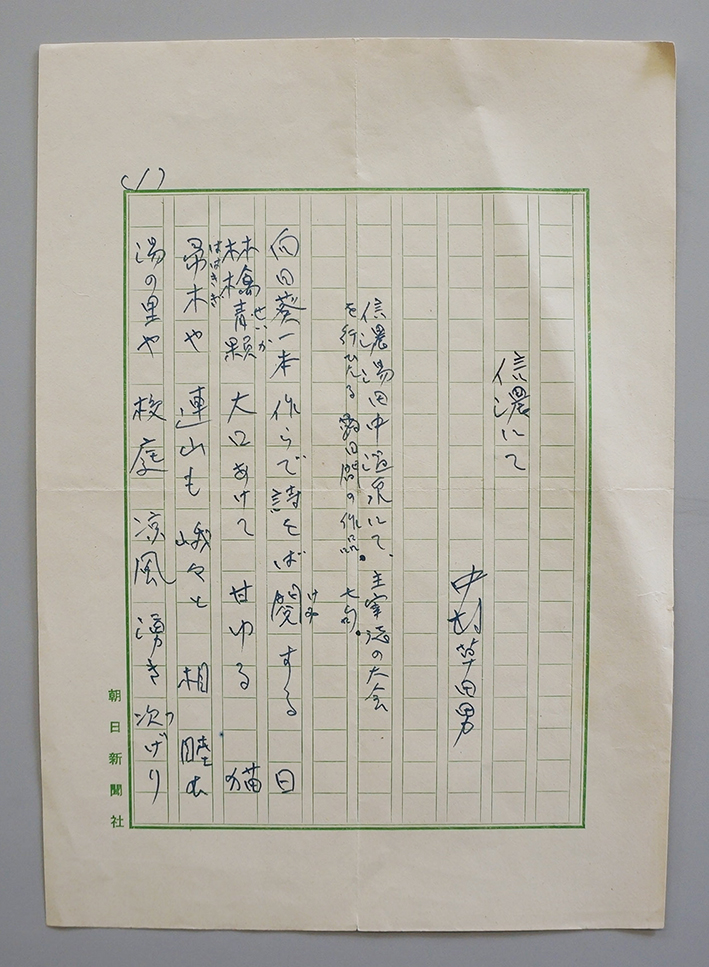 信濃にて
中村草田男
信濃湯田中温泉にて、主宰誌の大会
を行ひたる 数日間の作品。七句。
向日葵一本 作らで詩をば 閲する 日
けみ
林檎青顆 大口あけて 甘ゆる 猫
せいか
帚木や 連山も 峨々と 相睦む
ははきぎ
湯の里や 校庭 涼風 湧き 次げり
つ
(1)
朝日新聞社